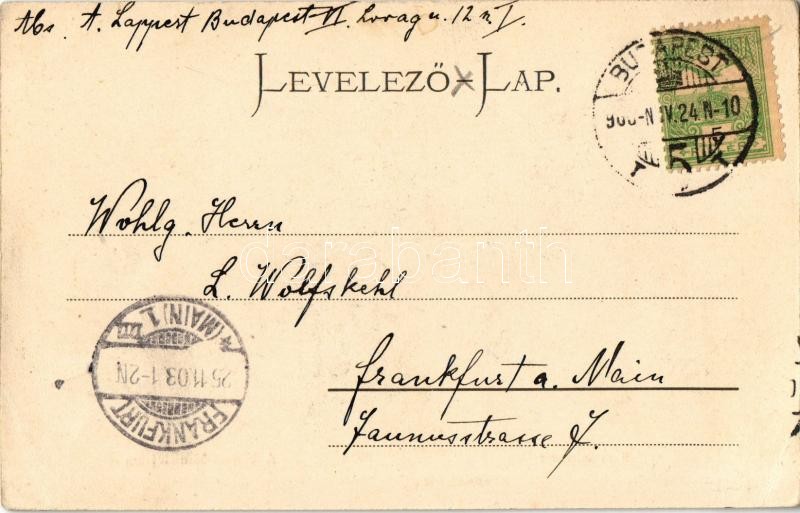 Abs. A. Lappert Budapest VI. Lovag u. 12 I.
LEVELEZŐ-LAP.
BUDAPEST
903-NOV.24.N-10
5
Wohlg. Herrn
L. Wolfskehl
Frankfurt a. Main
Taunusstrasse 7.
FRANKFURT
25.11.03.1-2N
*(MAIN)1.
darabanth